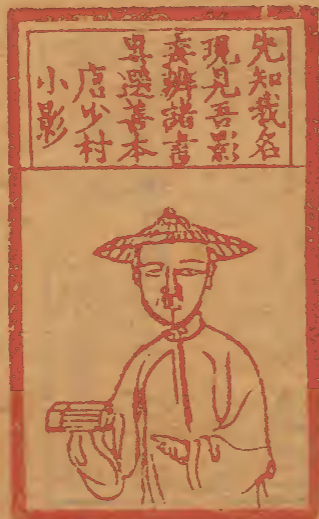 先知我名
現見吾影
委辦諸書
專選善本
唐少村
小影